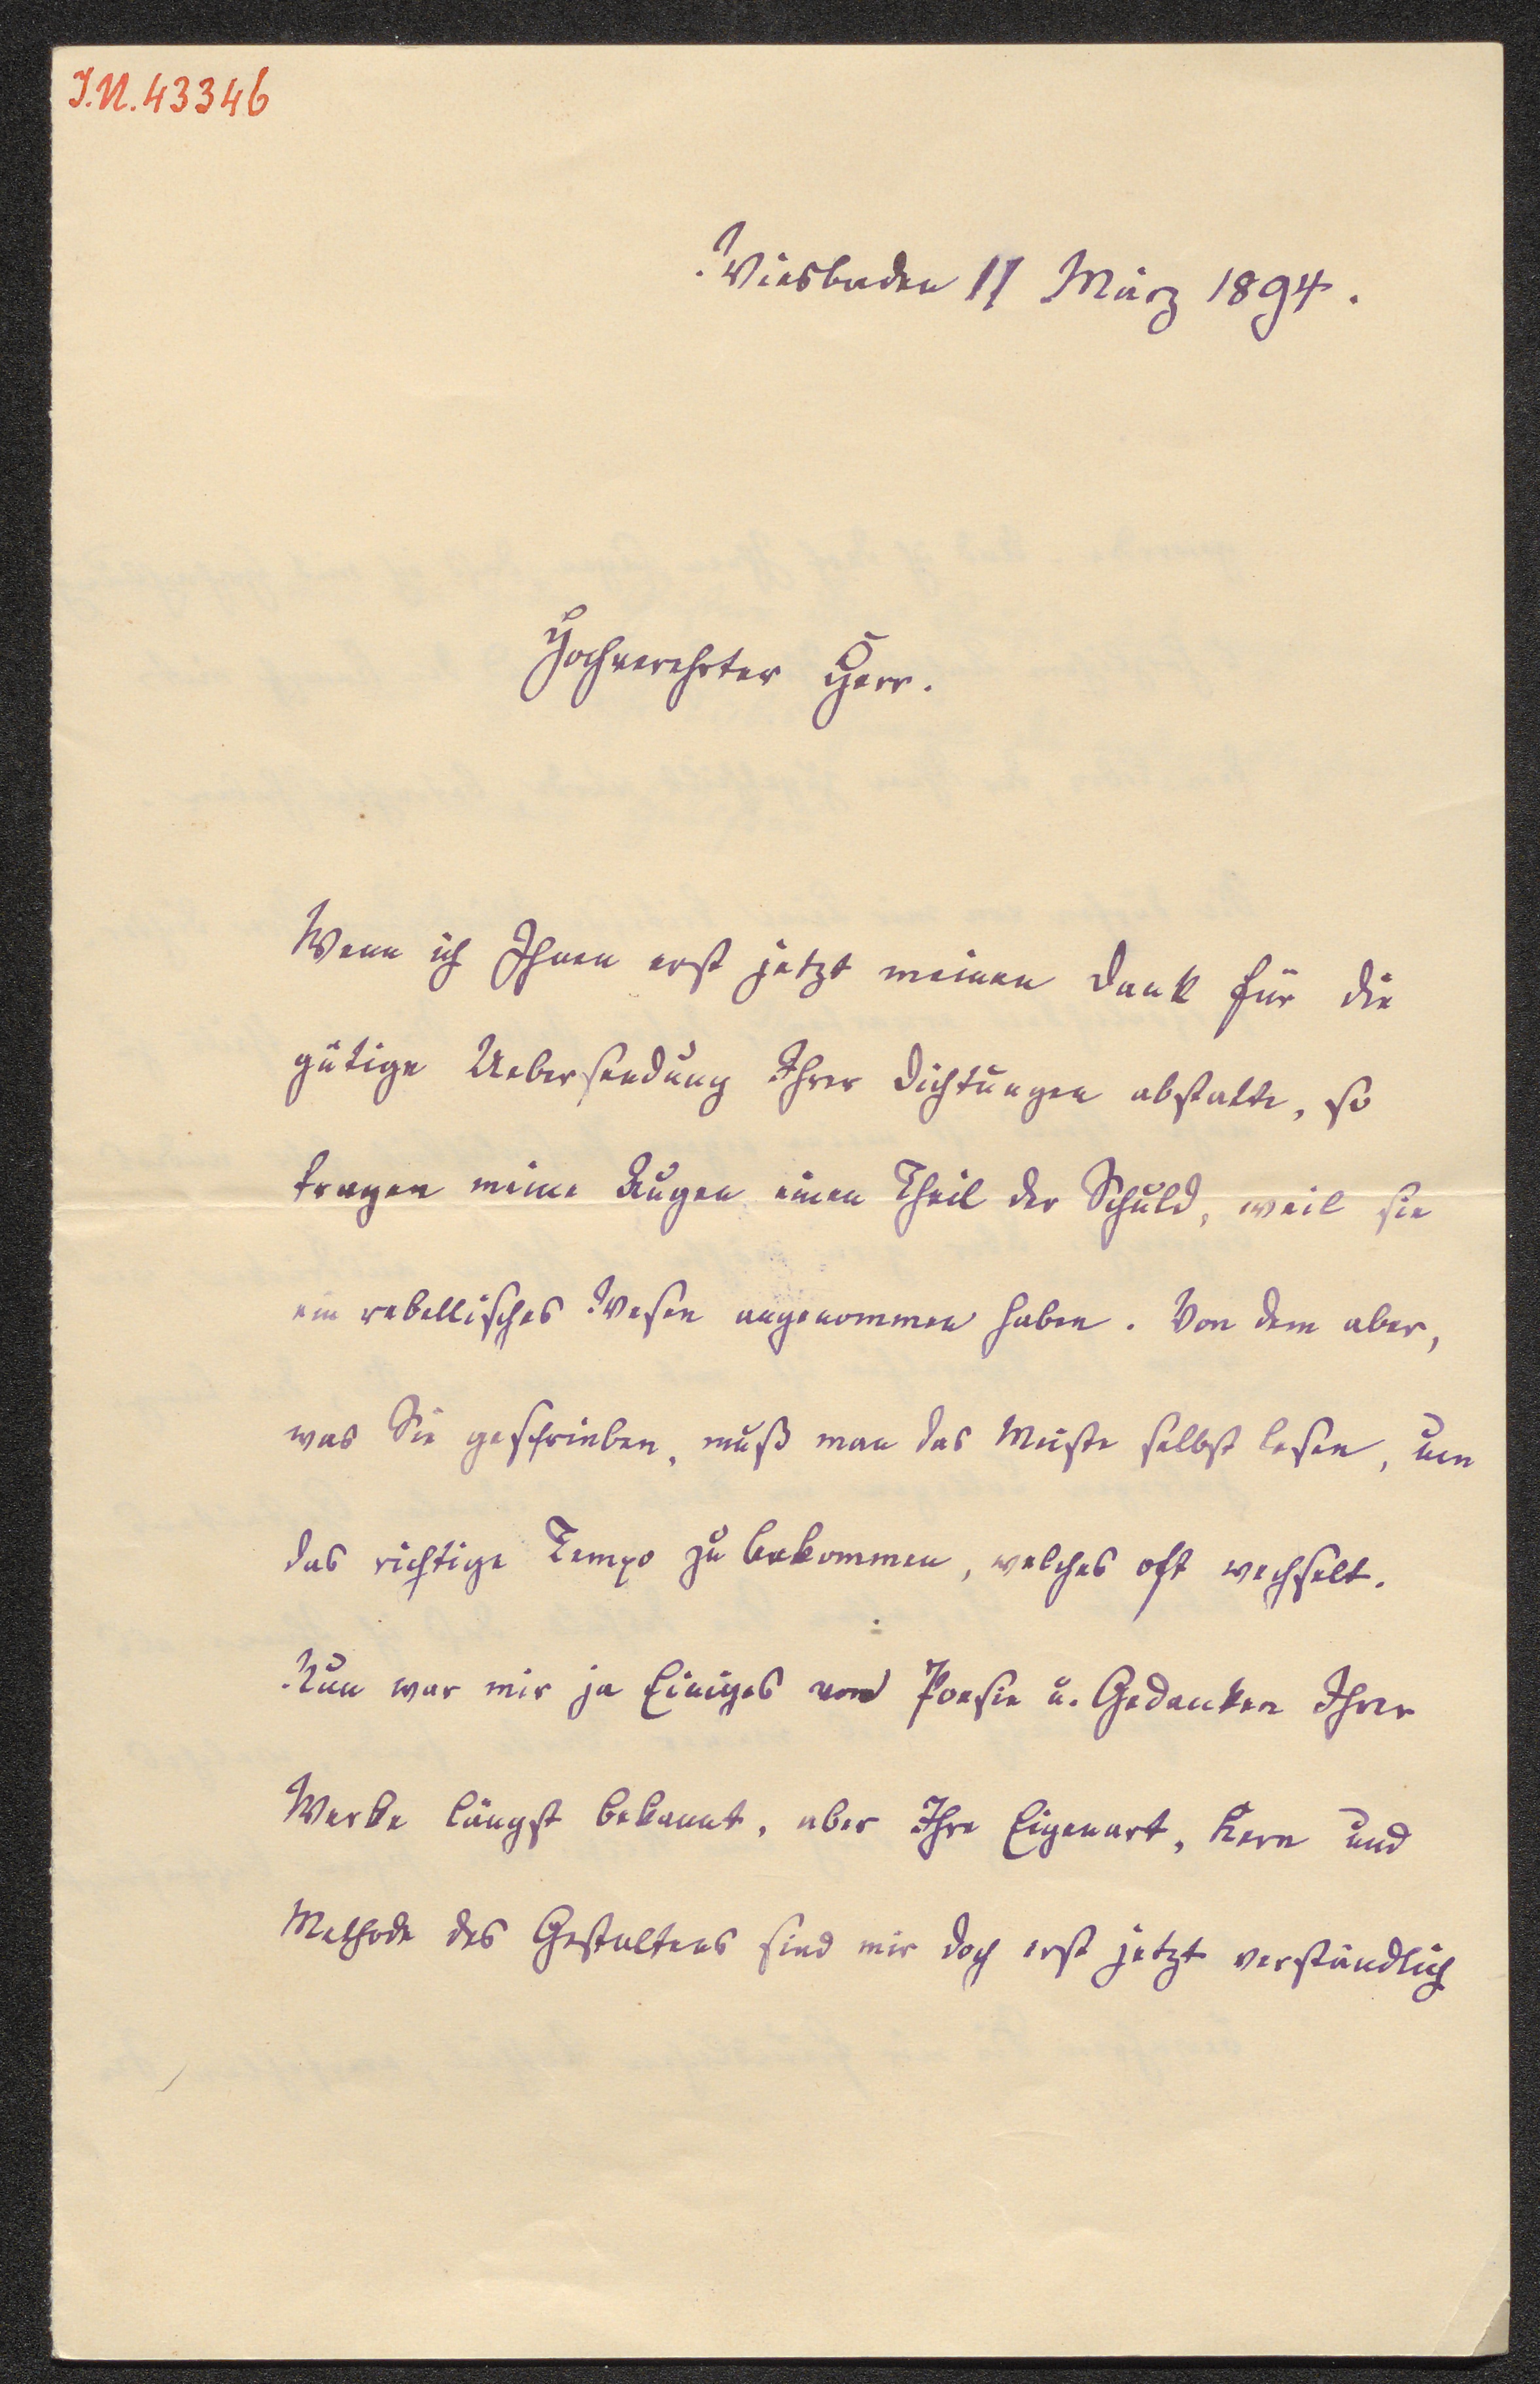 I.N. 43346
Wiesbaden 11 März 1894.
Hochverehrter Herr.
Wenn ich Ihnen erst jetzt meinen Dank für die
gütige Uebersendung Ihrer Dichtungen abstatte, so
tragen meine Augen einen Theil der Schuld, weil sie
ein rebellisches Wesen angenommen haben. Von dem aber,
was Sie geschrieben, muß man das Meiste selbst lesen, um
das richtige Tempo zu bekommen, welches oft wechselt.
Nun war mir ja Einiges von Poesie u. Gedanken Ihrer
Werke längst bekannt, aber Ihre Eigenart, Kern und
Methode des Gestaltens sind mir doch erst jetzt verständlich